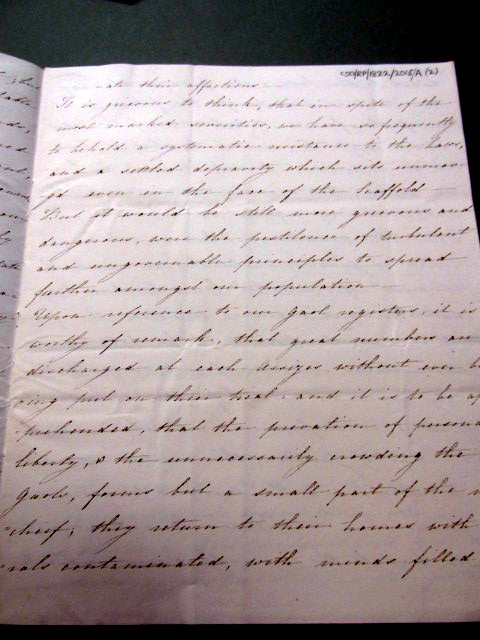 CSO/RP/1822/2015/A (2)
-ate their affections
It is grievous to think, that in spite of the
most marked severities, we have so frequently
to behold a systematic resistance to the Laws,
and a settled depravity which sits unmov-
ed even in the face of the Scaffold —
But it would be still more grievous and
dangerous, were the pestilence of turbulent
and ungovernable principles to spread
further amongst our population —
Upon reference to our Gaol registers, it is
worthy of remark, that great numbers are
discharged at each Assizes without ever be
ing put on their trial. and it is to be ap
prehended, that the privation of persona
liberty, & the unnecessarily crowding the
Gaols, forms but a small part of the m
-chief, they return to their homes with
rals contaminated, with minds filled